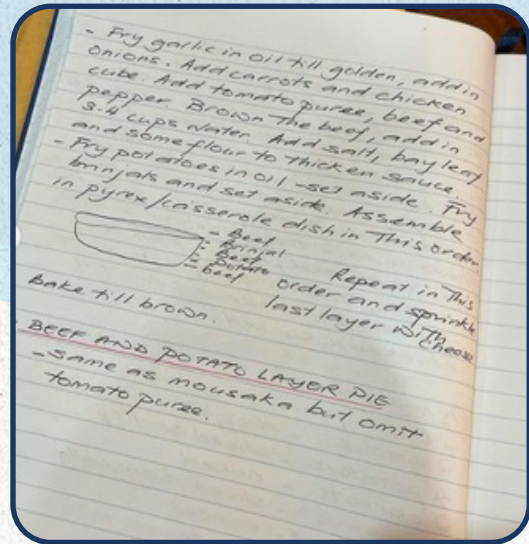 - Fry garlic in oil till golden, add in
onions. Add carrots and chicken
cube. Add tomato puree, beef and
pepper Brown the beef, add in
3-4 cups water. Add salt, bay leaf
and some flour to thicken sauce.
- Fry potatoes in oil - set aside. Fry
brinjals and set aside. Assemble
in pyrex/casserole dish in this order.
- Beef
- Brinjal
- Beef
- Potato
- Beef
Repeat in this
order and sprinkle
last layer with
cheese
Bake till brown.
BEEF AND POTATO LAYER PIE
- Same as mousaka but omit
tomato puree.